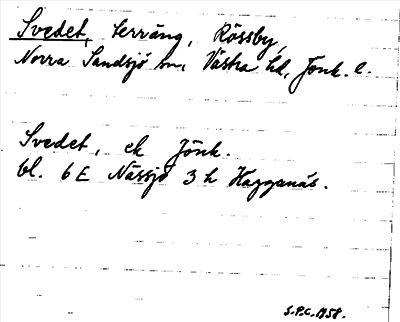 Svedet, terräng, Rössby,
Norra Sandsjö sn, Västra hd, Jönk. l.
Svedet, ek Jönk.
bl. 6E Nässjö 3 h Hagganäs.
S.P.C. 1958.